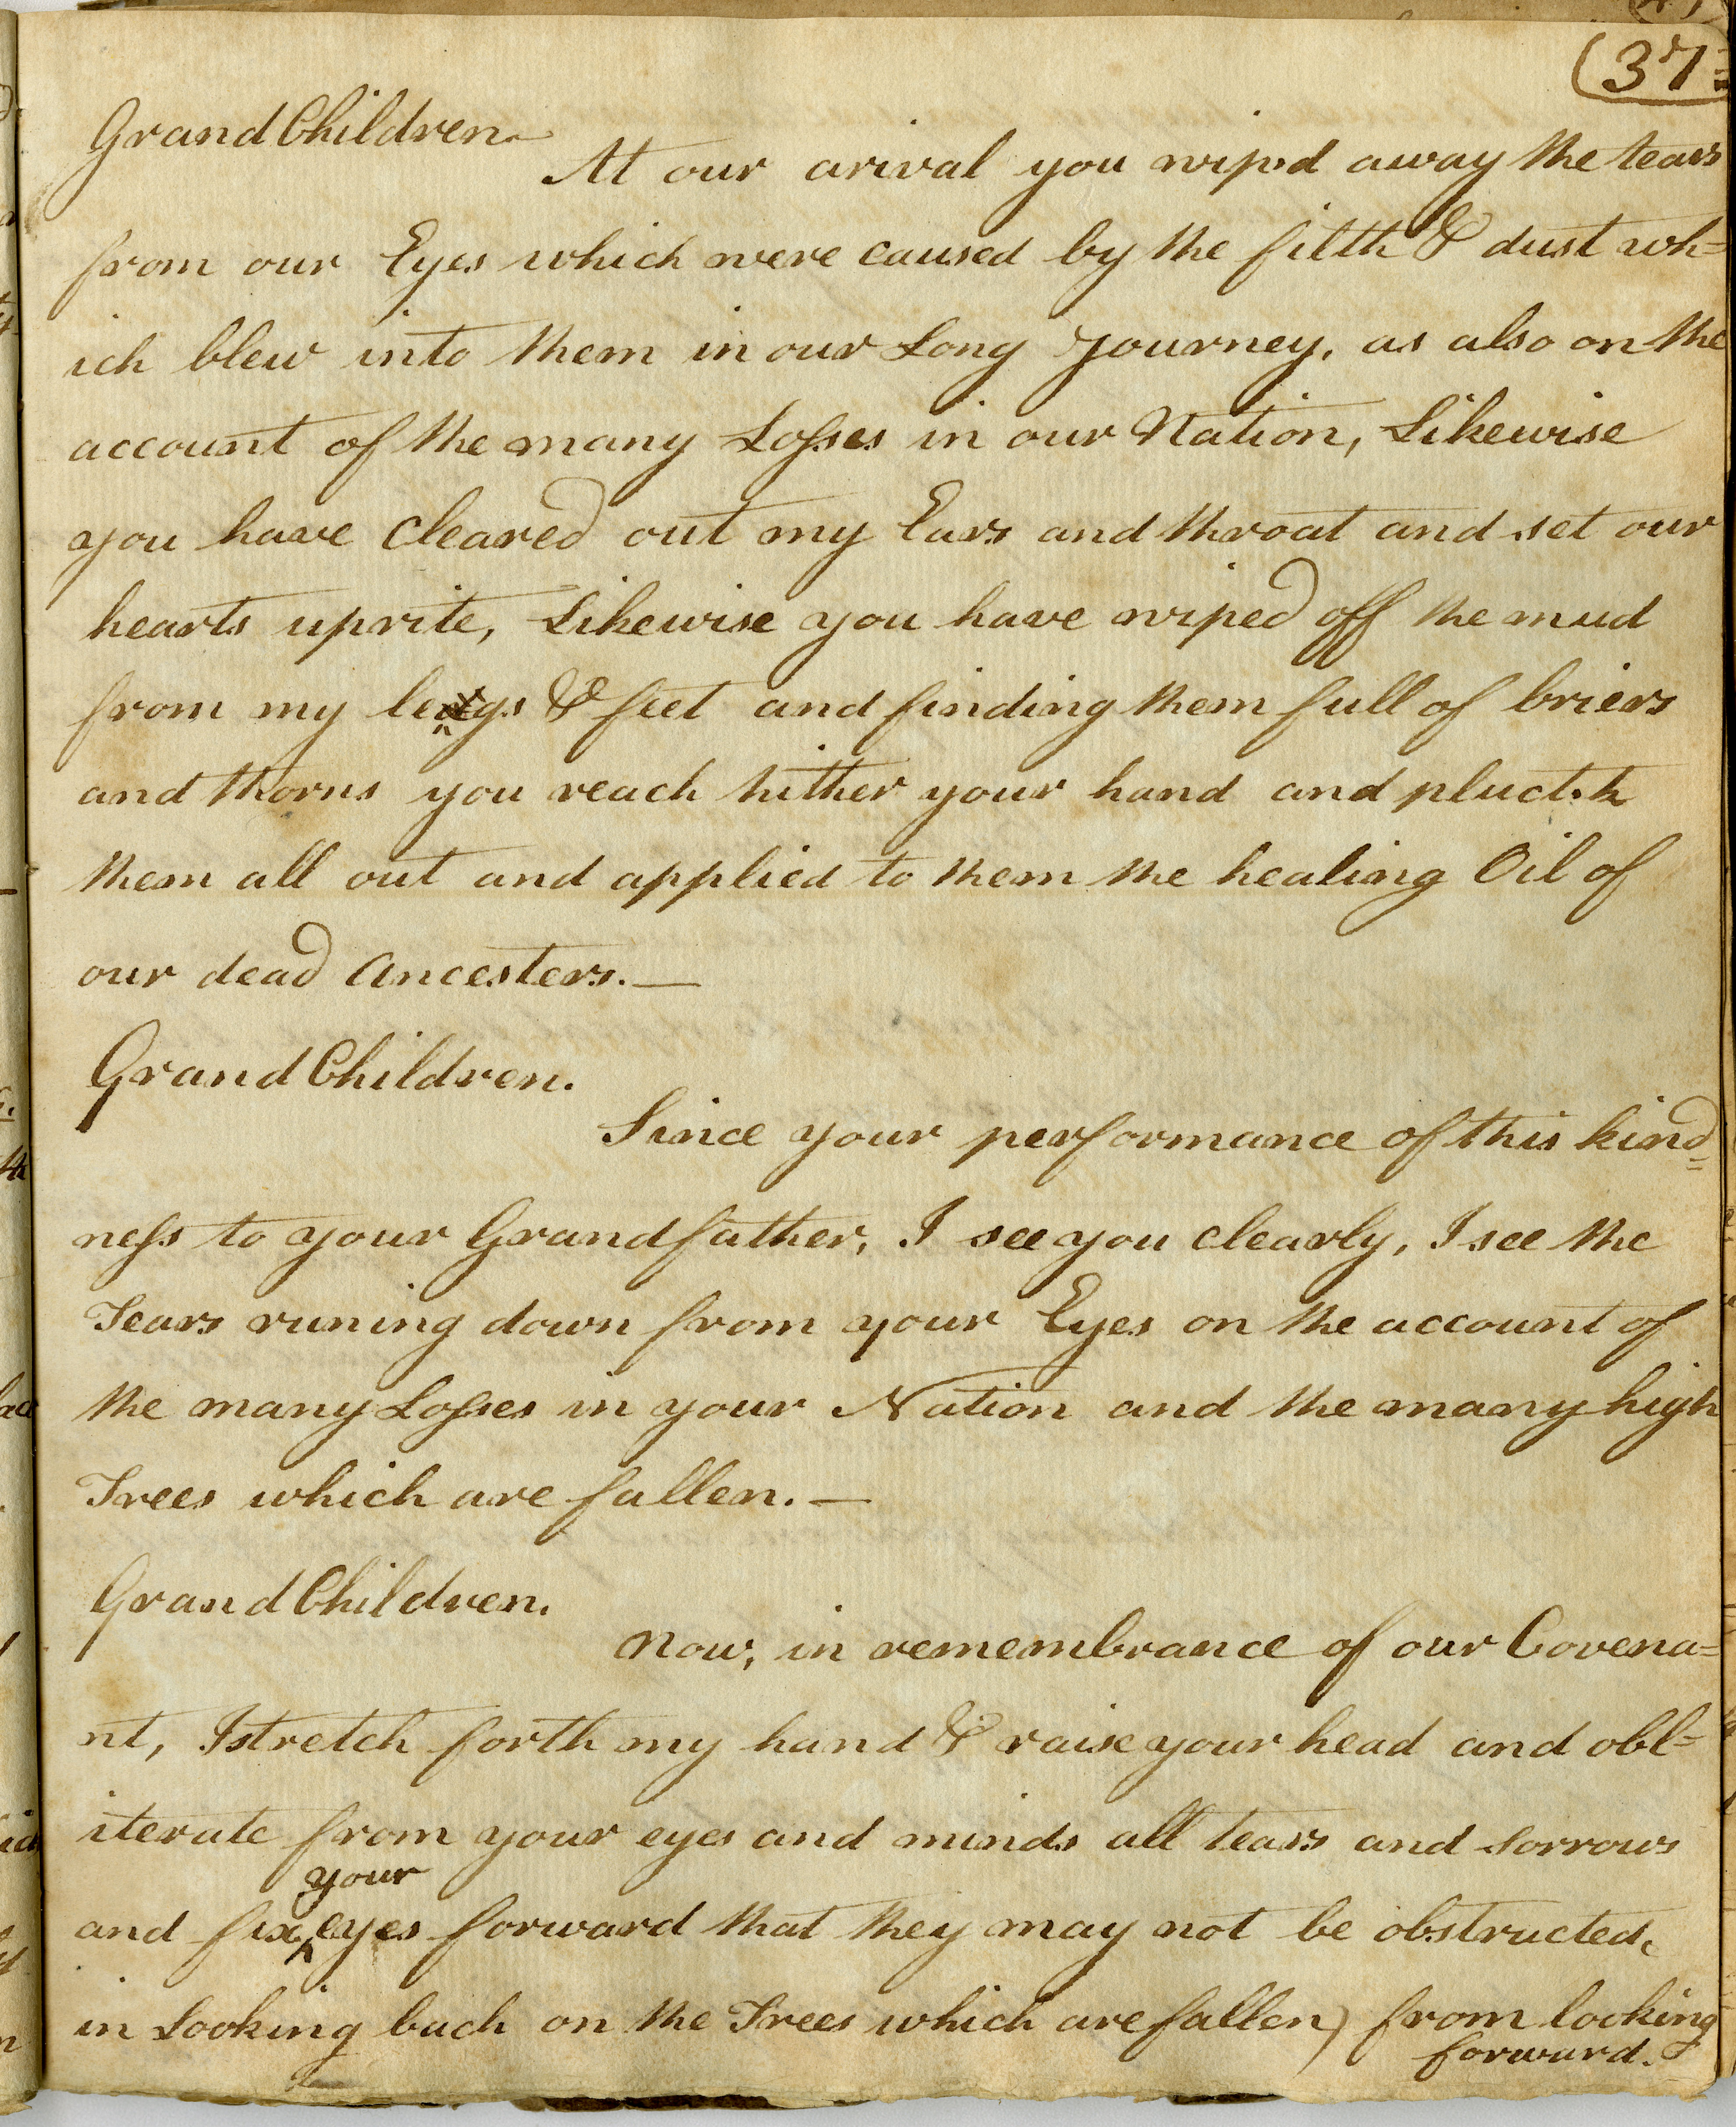 (37=
GrandChildren
At our arival you wip'd away the tears
from our Eyes which were caused by the filth & dust wh=
ich blew into them in our Long Journey, as also on the
account of the many Losses in our Nation, Likewise
you have Cleared out my Ears and throat and set our
hearts uprite, Likewise you have wiped off the mud
from my legs & feet and finding them full of briers
and thorns you reach hither your hand and pluct
them all out and applied to them the healing Oil of
our dead Ancesters.—
GrandChildren.
Since your performance of this kind=
ness to your Grandfather, I see you clearly, I see the
Tears runing down from your Eyes on the account of
the many Losses in your Nation and the many high
Trees which are fallen.—
GrandChildren.
Now, in remembrance of our Covena=
nt, I stretch forth my hand & raise your head and obl=
iterate from your eyes and minds all tears and sorrows
your
and fix ^ eyes forward that they may not be obstructed,
in Looking back on the Trees which are fallen) from looking
forward.